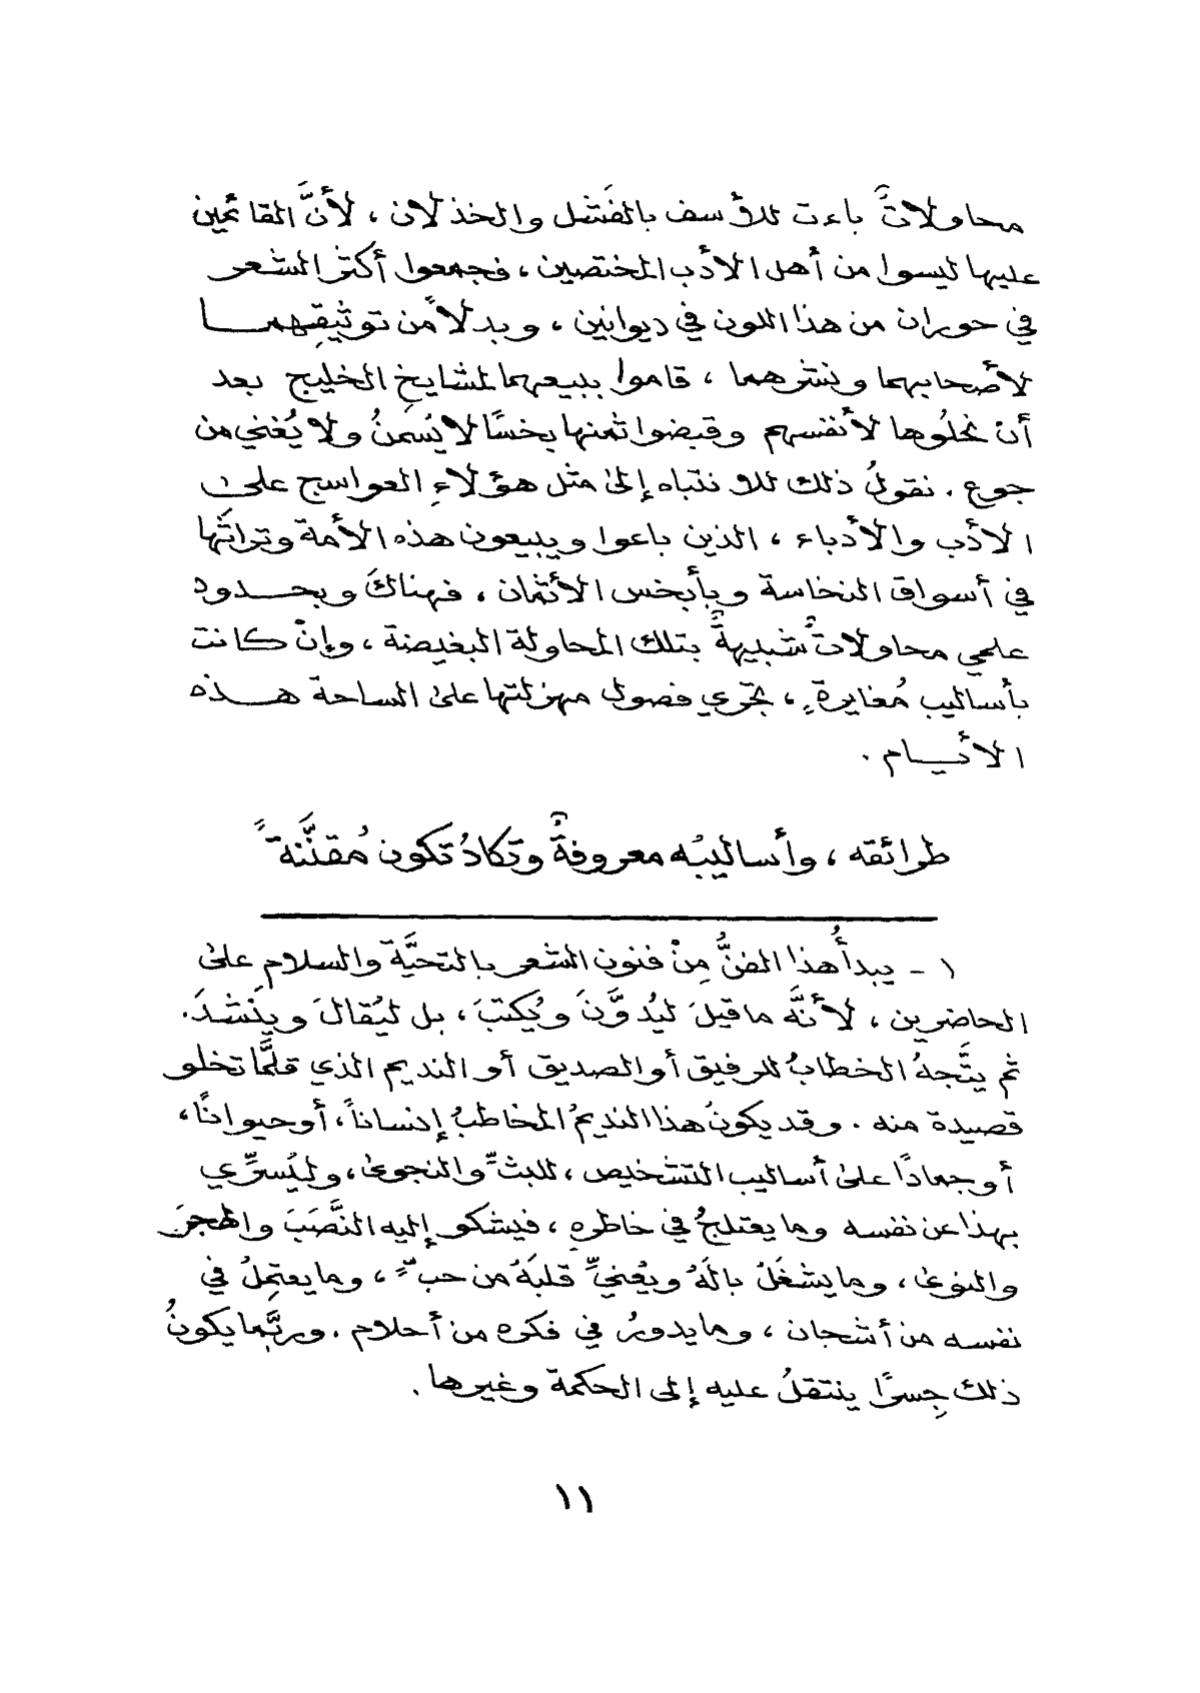 محاولاتٌ باءت للأسف بالفَشل والخذلان ، لأنَّ القائمين
عليها ليسوا من أهل الأدب المختصين ، فجمعوا أكثر الشعر
في حوران من هذا اللون في ديوانين ، وبدلاً من توثيقِهمــا
لأصحابهما ونشرهما ، قاموا ببيعهما لمشايخ الخليج بعد
أن نحلُوها لأنفسهم وقبضوا ثمنها بخسًا لا يُسمنُ ولا يُغني من
جوع . نقولُ ذلك للانتباه إلى مثل هؤلاءِ العواسج على
الأدب والأدباء ، الذين باعوا ويبيعون هذه الأمة وتراثَها
في أسواق النخاسة وبأبخس الأثمان ، فهناكَ وبحــدود
علمي محاولاتٌ شبيهةٌ بتلك المحاولة البغيضة ، وإنْ كانت
بأساليب مُغايرةٍ ، تجري فصول مهزلتها على الساحة هــذه
الأيــام .
طرائقه ، وأساليبُه معروفةٌ وتكادُ تكون مُقنَّنةً
١ - يبدأُ هذا الفنُّ مِنْ فنون الشعر بالتحيَّة والسلامِ على
الحاضرين ، لأنَّه ما قيلَ ليُدوَّنَ ويُكتبَ ، بل ليُقالَ وينشدَ .
ثم يتَّجهُ الخطابُ للرفيق أو الصديق أو النديم الذي قلمَّا تخلو
قصيدة منه . وقد يكونُ هذا النديمُ المخاطبُ إنساناً ، أو حيوانًا ،
أو جمادًا على أساليب التشخيص ، للبثِّ والنجوى ، وليُسرِّي
بهذا عن نفسه وما يعتلجُ في خاطرهِ ، فيشكو إليه النَّصَبَ والهجرَ
والنوى ، وما يشغلُ بالَهُ ويُعنيِّ قلبَهُ من حبٍّ ، وما يعتمِلُ في
نفسه من أشجان ، وما يدورُ في فكره من أحلام . وربَّما يكونُ
ذلك جِسرًا ينتقلُ عليه إلى الحكمة وغيرها .
١١